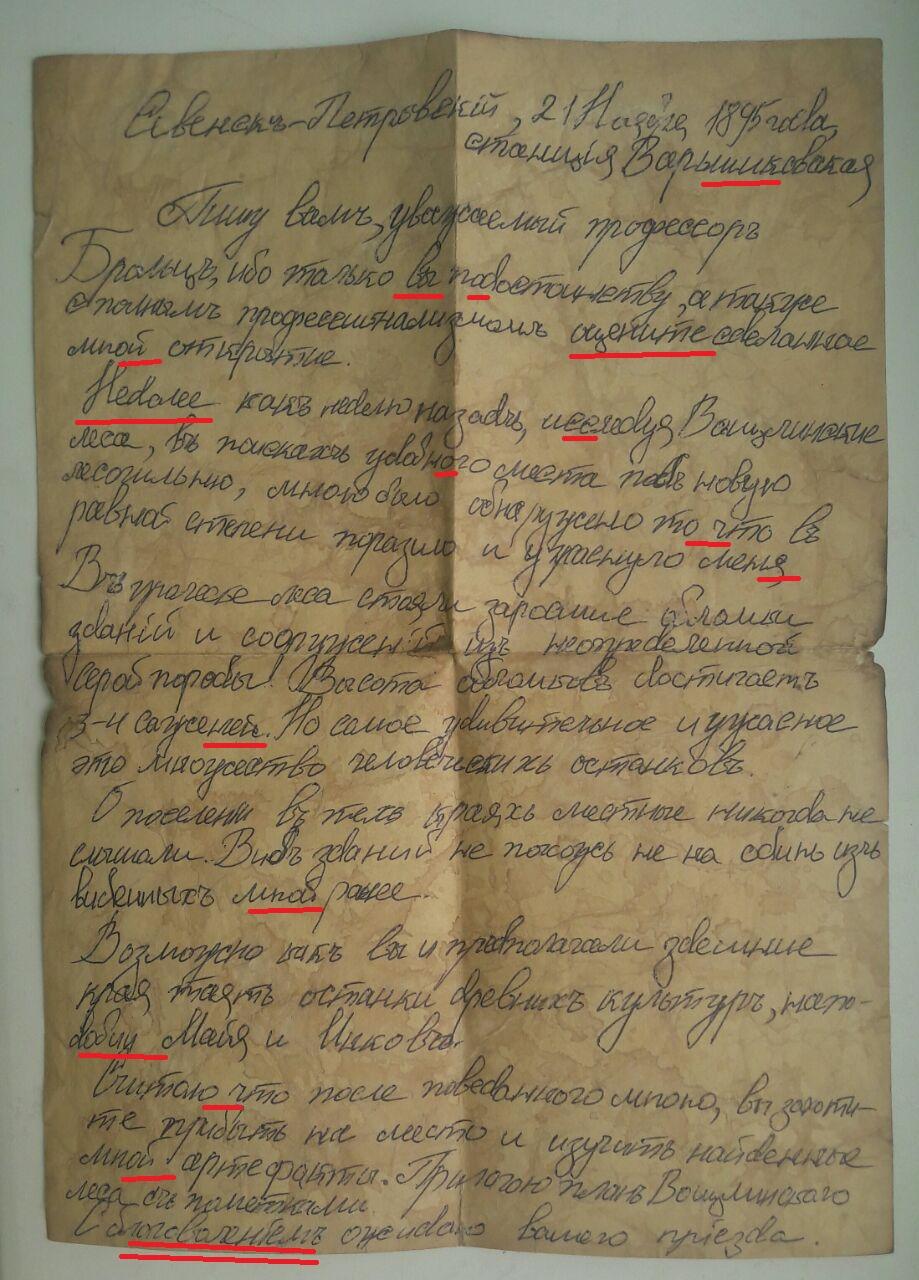 Сивенскъ-Петровскій, 21 Ноября 1895 года,
станиція Варышиковакая
Пишу вамъ, уважаемый профессоръ
ибо только вы по достоинству, а также
с полнымъ профессионализмомъ оцените сделанное
мной открытие.
Неболее какъ неделю назадъ, исследуя Вошулинские
леса, въ поискахъ удобного места подъ новую
лесопильню, мною было обнаружено то что въ
равной степени поразило и ужаснуло меня
Въ участке леса стояли заросшие обломки
зданій и сооруженій изъ неопределенной
серой породы! Высота обломковъ достигаетъ
3-4 саженей. Но самое удивительное и ужасное
это множество человеческихъ останковъ.
О поселени въ техъ краяхъ местные никогда не
слышали. Видъ зданий не похожъ не на одинъ изъ
виденныхъ мной ранее.
Возможно какъ вы и предполагали здешние
края таятъ останки древнихъ культуръ, напо-
добии Майя и Инковъ.
Считаю что после поведанного мною, вы захоти-
те прибыть на место и изучить найденные
мной артефакты. Прилагаю планъ Вошулинского
леса съ пометками.
С благоволениемъ ожидаю вашего пріезда.